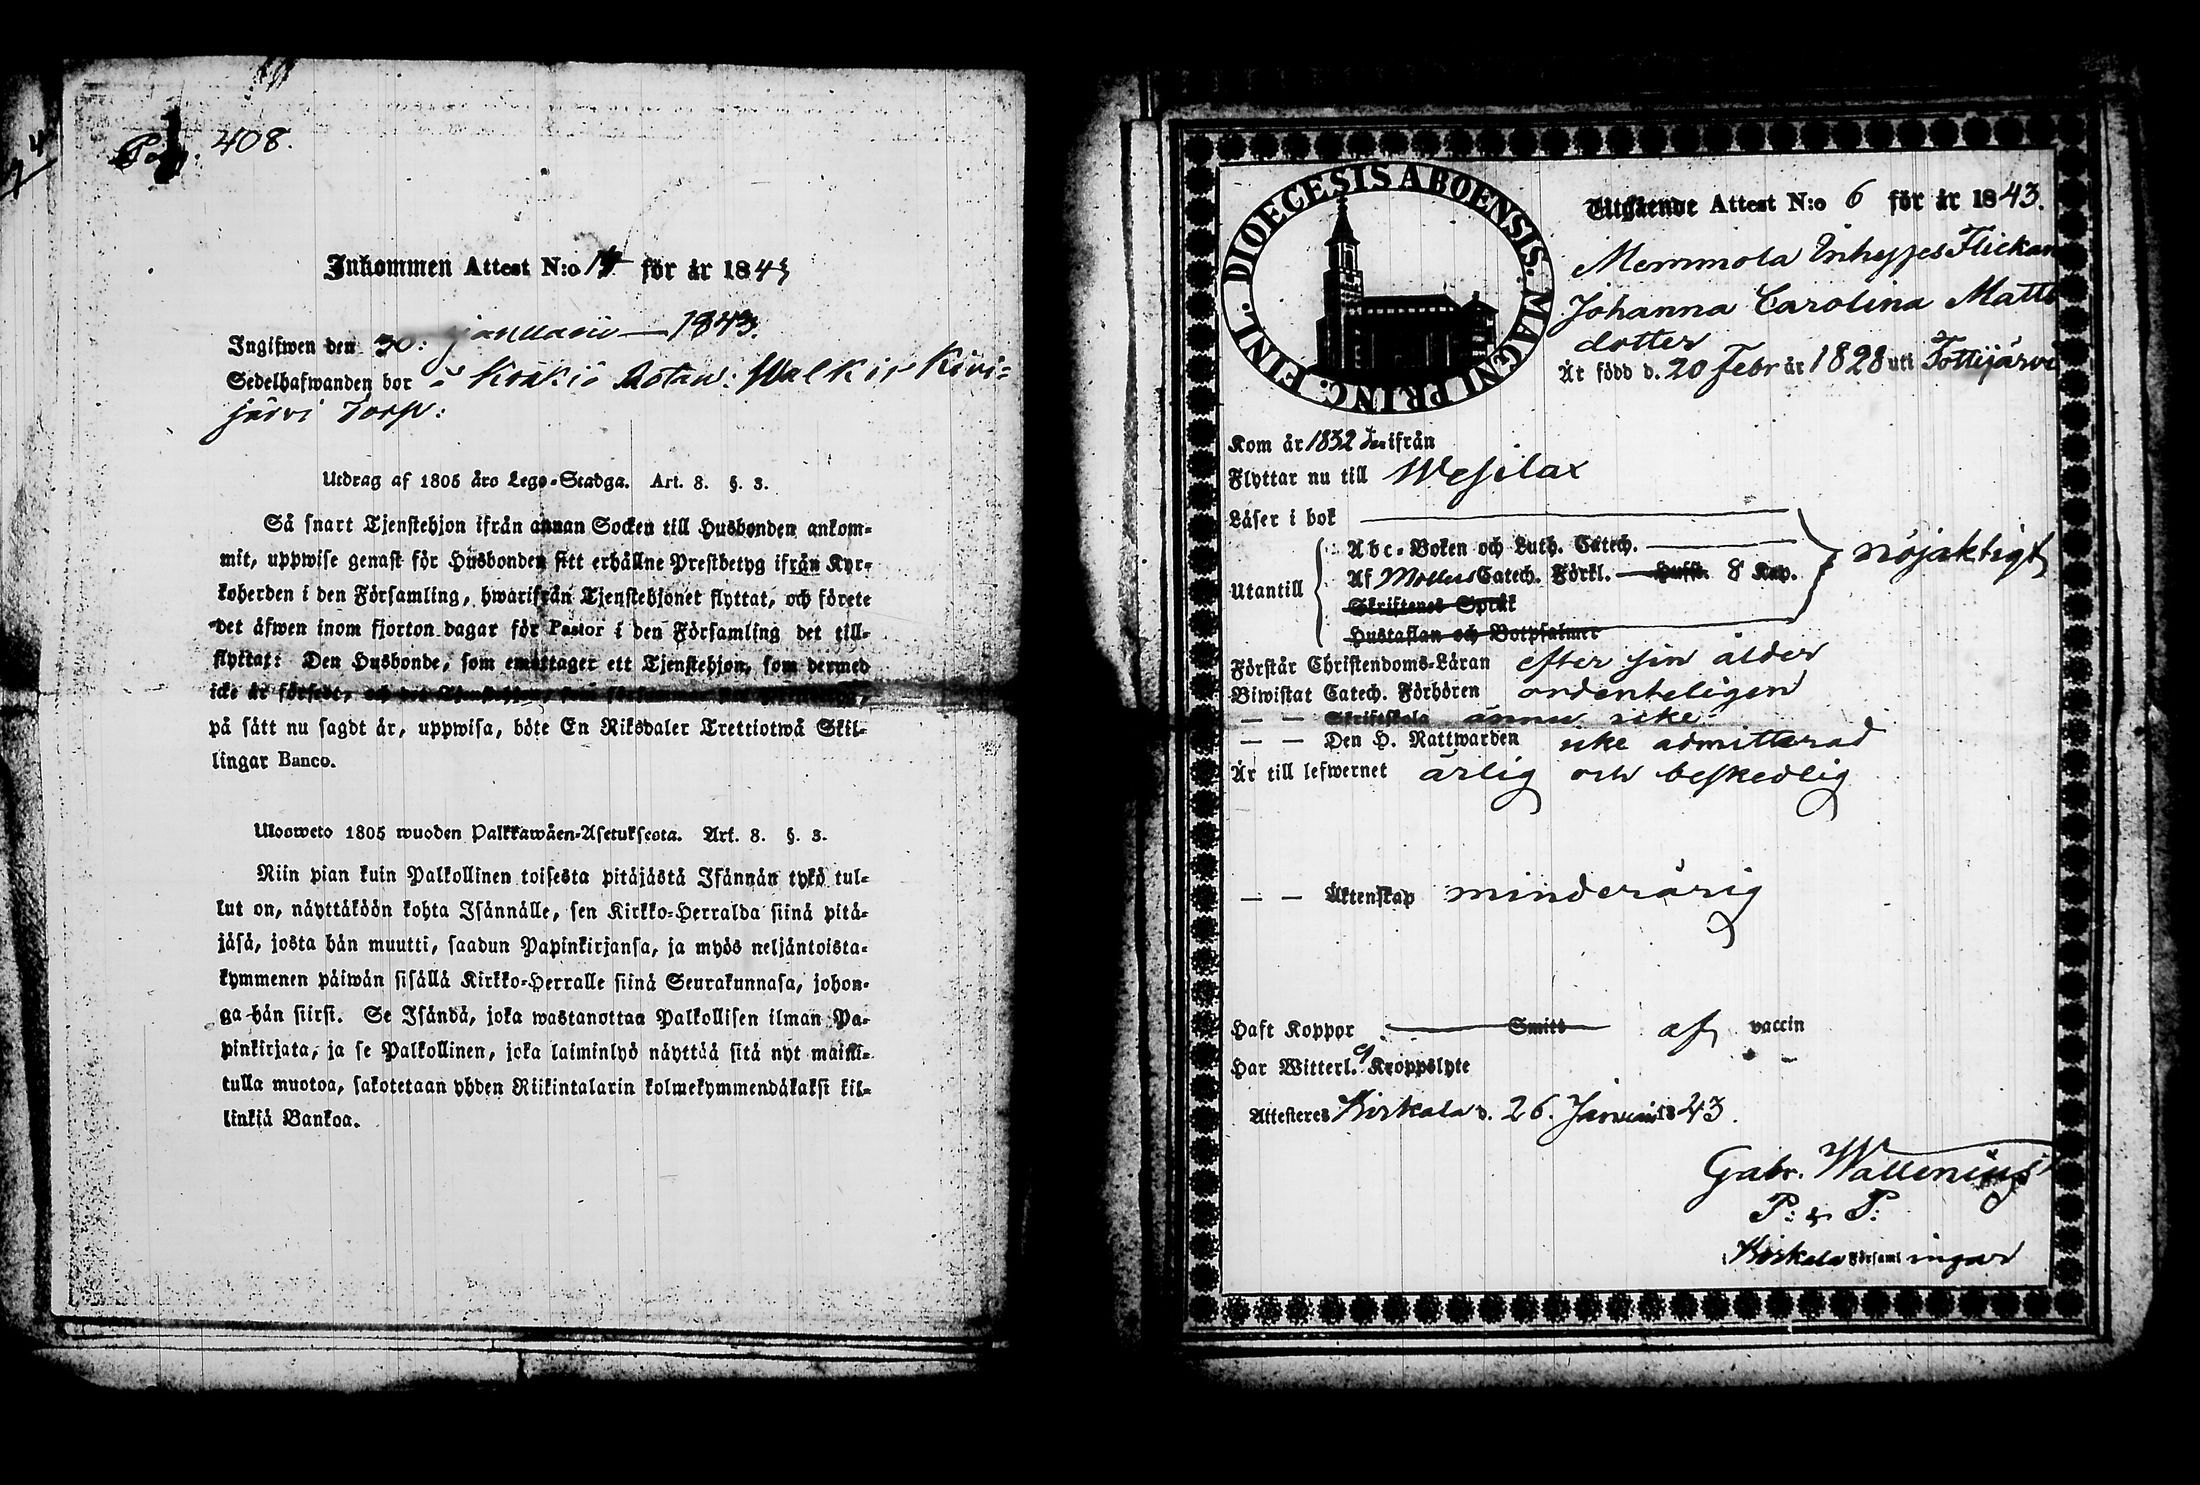 Pag: 408.
Inkommen Attest N:o 14 för år 1843
Ingifwen den 30: januarii — 1843.
Sedelhafwanden bor i Koskis Walkis Kivi=
järvi Torp:
Utdrag af 1805 års Lego-Stadga. Art. 8. §. 3.
Så snart Tjenstehjon ifrån annan Socken till Husbonden ankom=
mit, uppwise genast för Husbonden sitt erhållne Prestbetyg ifrån Kyr=
koherden i den Församling, hwarifrån Tjenstehjonet flyttat, och förete
det äfwen inom fjorton dagar för Pastor i den Församling det till=
flyttat: Den Husbonde, som emottager ett Tjenstehjon, som dermed
icke är försedt, och det Tjenstehjon, som
på sätt nu sagdt är, uppwisa, böte En Riksdaler Trettiotwå Skil=
lingar Banco.
Ulosweto 1805 wuoden Palkkawäen-Asetuksesta. Art. 8. §. 3.
Niin pian kuin Palkollinen toisesta pitäjästä Isännän tykö tul=
lut on, näyttäköön kohta Isännälle, sen Kirkko-Herralda siinä pitä=
jäsä, josta hän muutti, saadun Papinkirjansa, ja myös neljäntoista=
kymmenen päiwän sisällä Kirkko-Herralle siinä Seurakunnasa, johon=
ga hän siirsi. Se Isändä, joka wastanottaa Palkollisen ilman Pa=
pinkirjata, ja se Palkollinen, joka laiminlyö näyttää sitä nyt maini=
tulla muotoa, sakotetaan yhden Riikintalarin kolmekymmendäkaksi kil=
linkiä Bankoa.
DIOECESIS ABOENSIS. MAGNI PRINC. FINL.
Utgående Attest N:o 6 för år 1843.
Memmola Inhyses Flickan
Johanna Carolina Matts
dotter
Är född d. 20 Febr år 1828 uti Tottijärvi
Kom år 1832 ifrån
Flyttar nu till Wesilax
Läser i bok
Utantill
Abc-Boken och Luth. Catech.
Af Möllers Catech. Förkl. Hufst. 8 Kap.
Skriftenes Språk
Hustaflan och Botpsalmer
nöjaktigt
Förstår Christendoms-Läran efter sin ålder
Biwistat Catech. Förhören ordenteligen
— — Skriftskola ännu icke
— — Den H. Nattwarden icke admitterad
Är till lefwernet ärlig och beskedlig
— — Äktenskap minderårig
Haft Koppor Smitt af vaccin
Har Witterl. ej Kroppslyte
Attesteres Birkala d. 26. Januarii 1843.
Gabr. Wallenius
P: & P:
i Birkala Församlingar